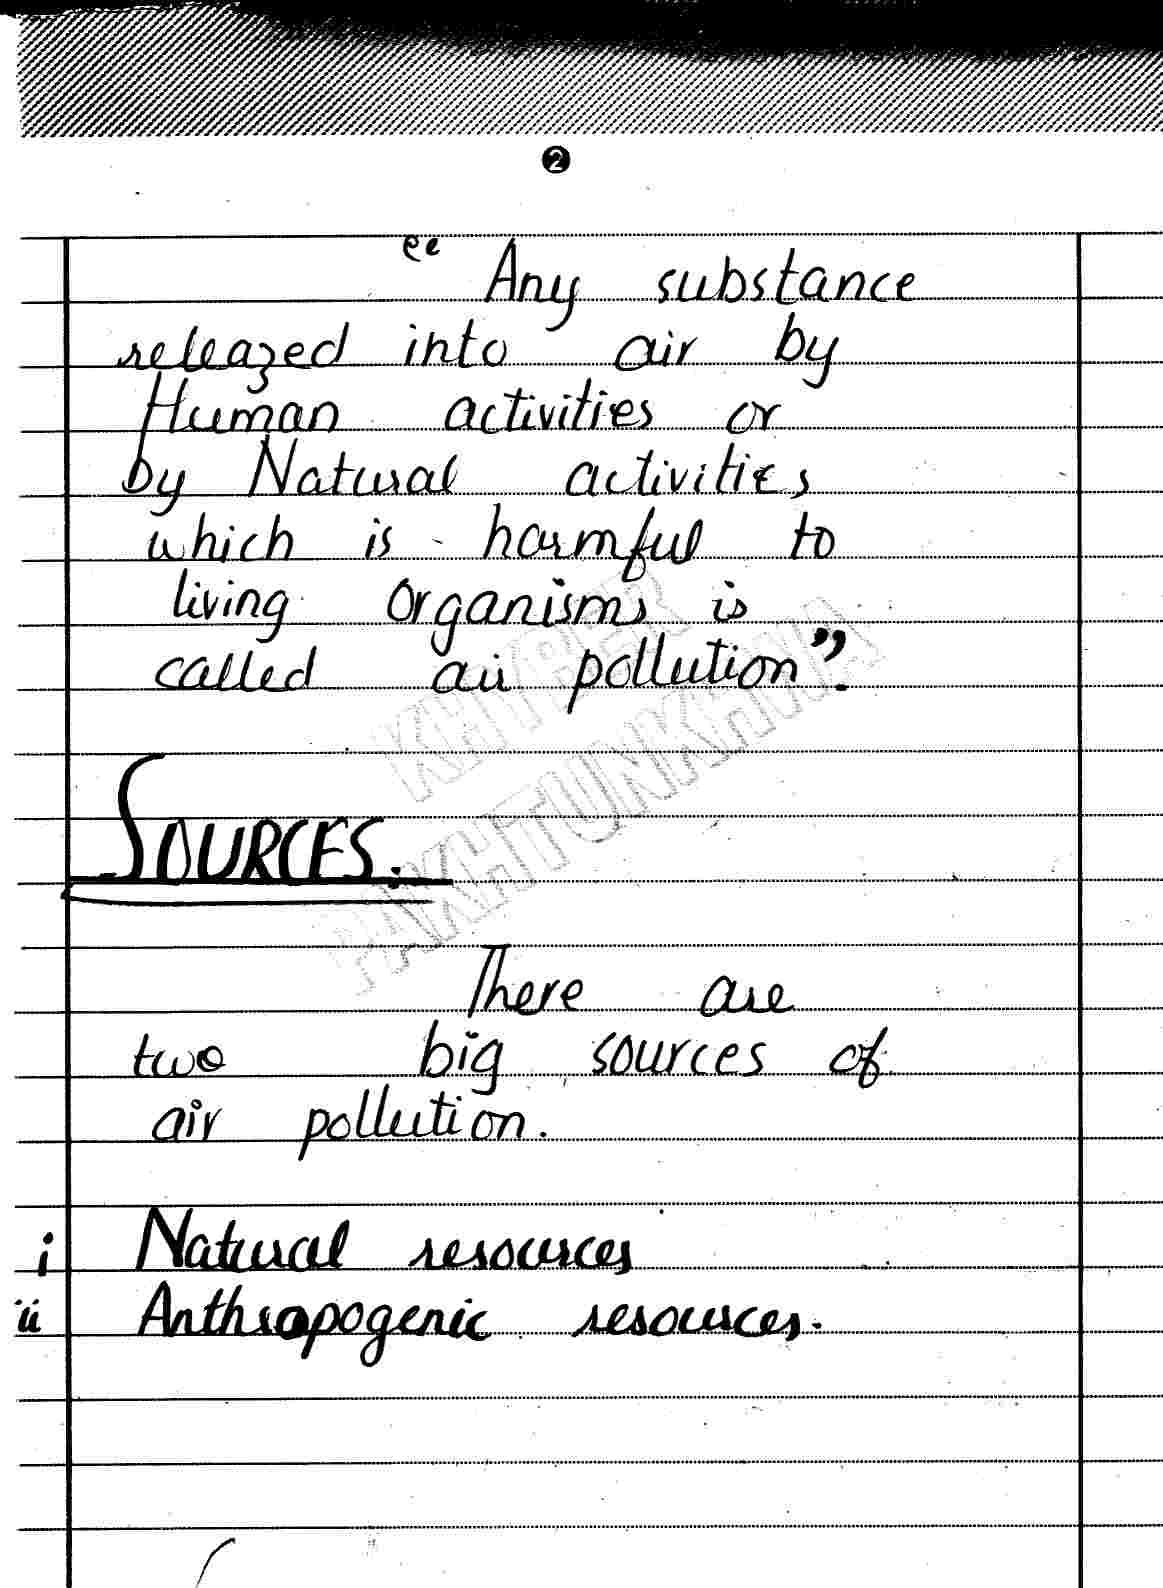 2
“ Any substance
releazed into air by
Human activities or
by Natural activities
which is harmful to
living organisms is
called air pollution”.
KHYBER
PAKHTUNKHWA
SOURCES:
There are
two big sources of
air pollution.
i Natural resources
ii Anthropogenic resources.